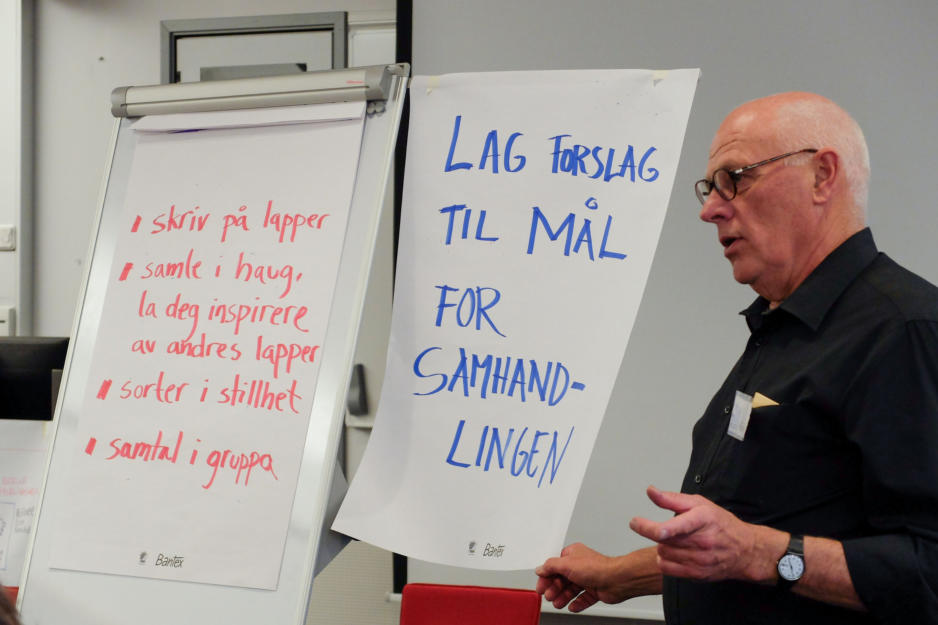 ▮ skriv på lapper
▮ samle i haug,
la deg inspirere
av andres lapper
▮ sorter i stillhet
▮ samtal i gruppa
Bantex
LAG FORSLAG
TIL MÅL
FOR
SAMHAND-
LINGEN
Bantex